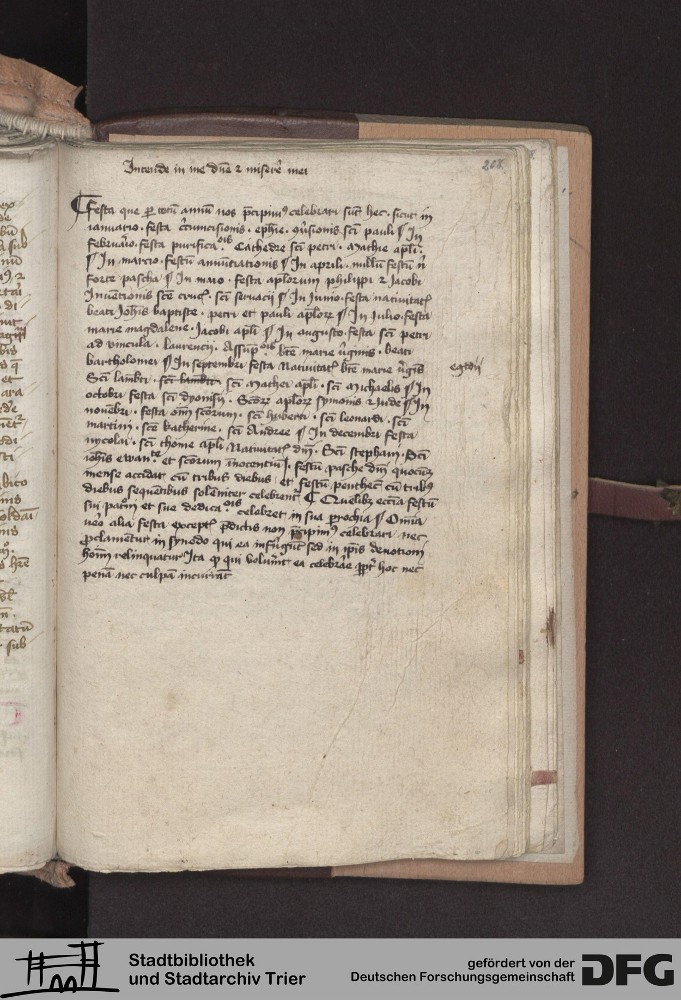 Intende in me dne 2 misere mei
208
Festa que p totu annu nos pcipim celebrari sut hec. sicut in
ianuario. festa ccuncisionis. ephie. 9usionis sci pauli In
februario. festa purifica ois Cathedre sci petri. mathie apli.
In marcio. festu anuntiationis In aprili. nullu festu n
forte pascha In maio. festa aplorum philippi 2 Jacobi
Inuentionis sce cruc. sci seruacii In Junio. festa natiuitat
beati Johis baptiste. petri et pauli aplor In Julio. festa
marie magdalene. Jacobi apli In augusto. festa sci petri
ad vincula. laurencii. Assup ois bte marie uginis. beati
bartholomei In septembri festa Natiuitat bte marie ugis
egidii
Sci lambti. sci lambti. sci Mathei apli. sci Michaelis In
octobri festa sci dyonisii. Scor aplor symonis 2 iude In
nouebri. festa oim scorum. sci huberti. sci leonardi. sci
martini. sce katherine. sci Andree In decembri festa
nycolai. sci thome apli. Natiuitat dni. Sci stephani. Sci
iohis ewan te et scorum inocentiu. festu pasche dni quocuz
mense accidat cu tribus diebus et festu penthec cu trib9
diebus sequetibus solemiter celebrent Quelibz eccia festu
sui patni et sue dedica ois celebret in sua prochia Omia
uero alia festa except pdictis non pcipim celebrari nec
pclametur in synodo qui ea infrigut sed in ipis deuotioni
hoim relinquatur Ita q qui voluint ea celebrare ppt hoc nec
pena nec culpa incurrat
Stadtbibliothek
und Stadtarchiv Trier
gefördert von der
Deutschen Forschungsgemeinschaft
DFG